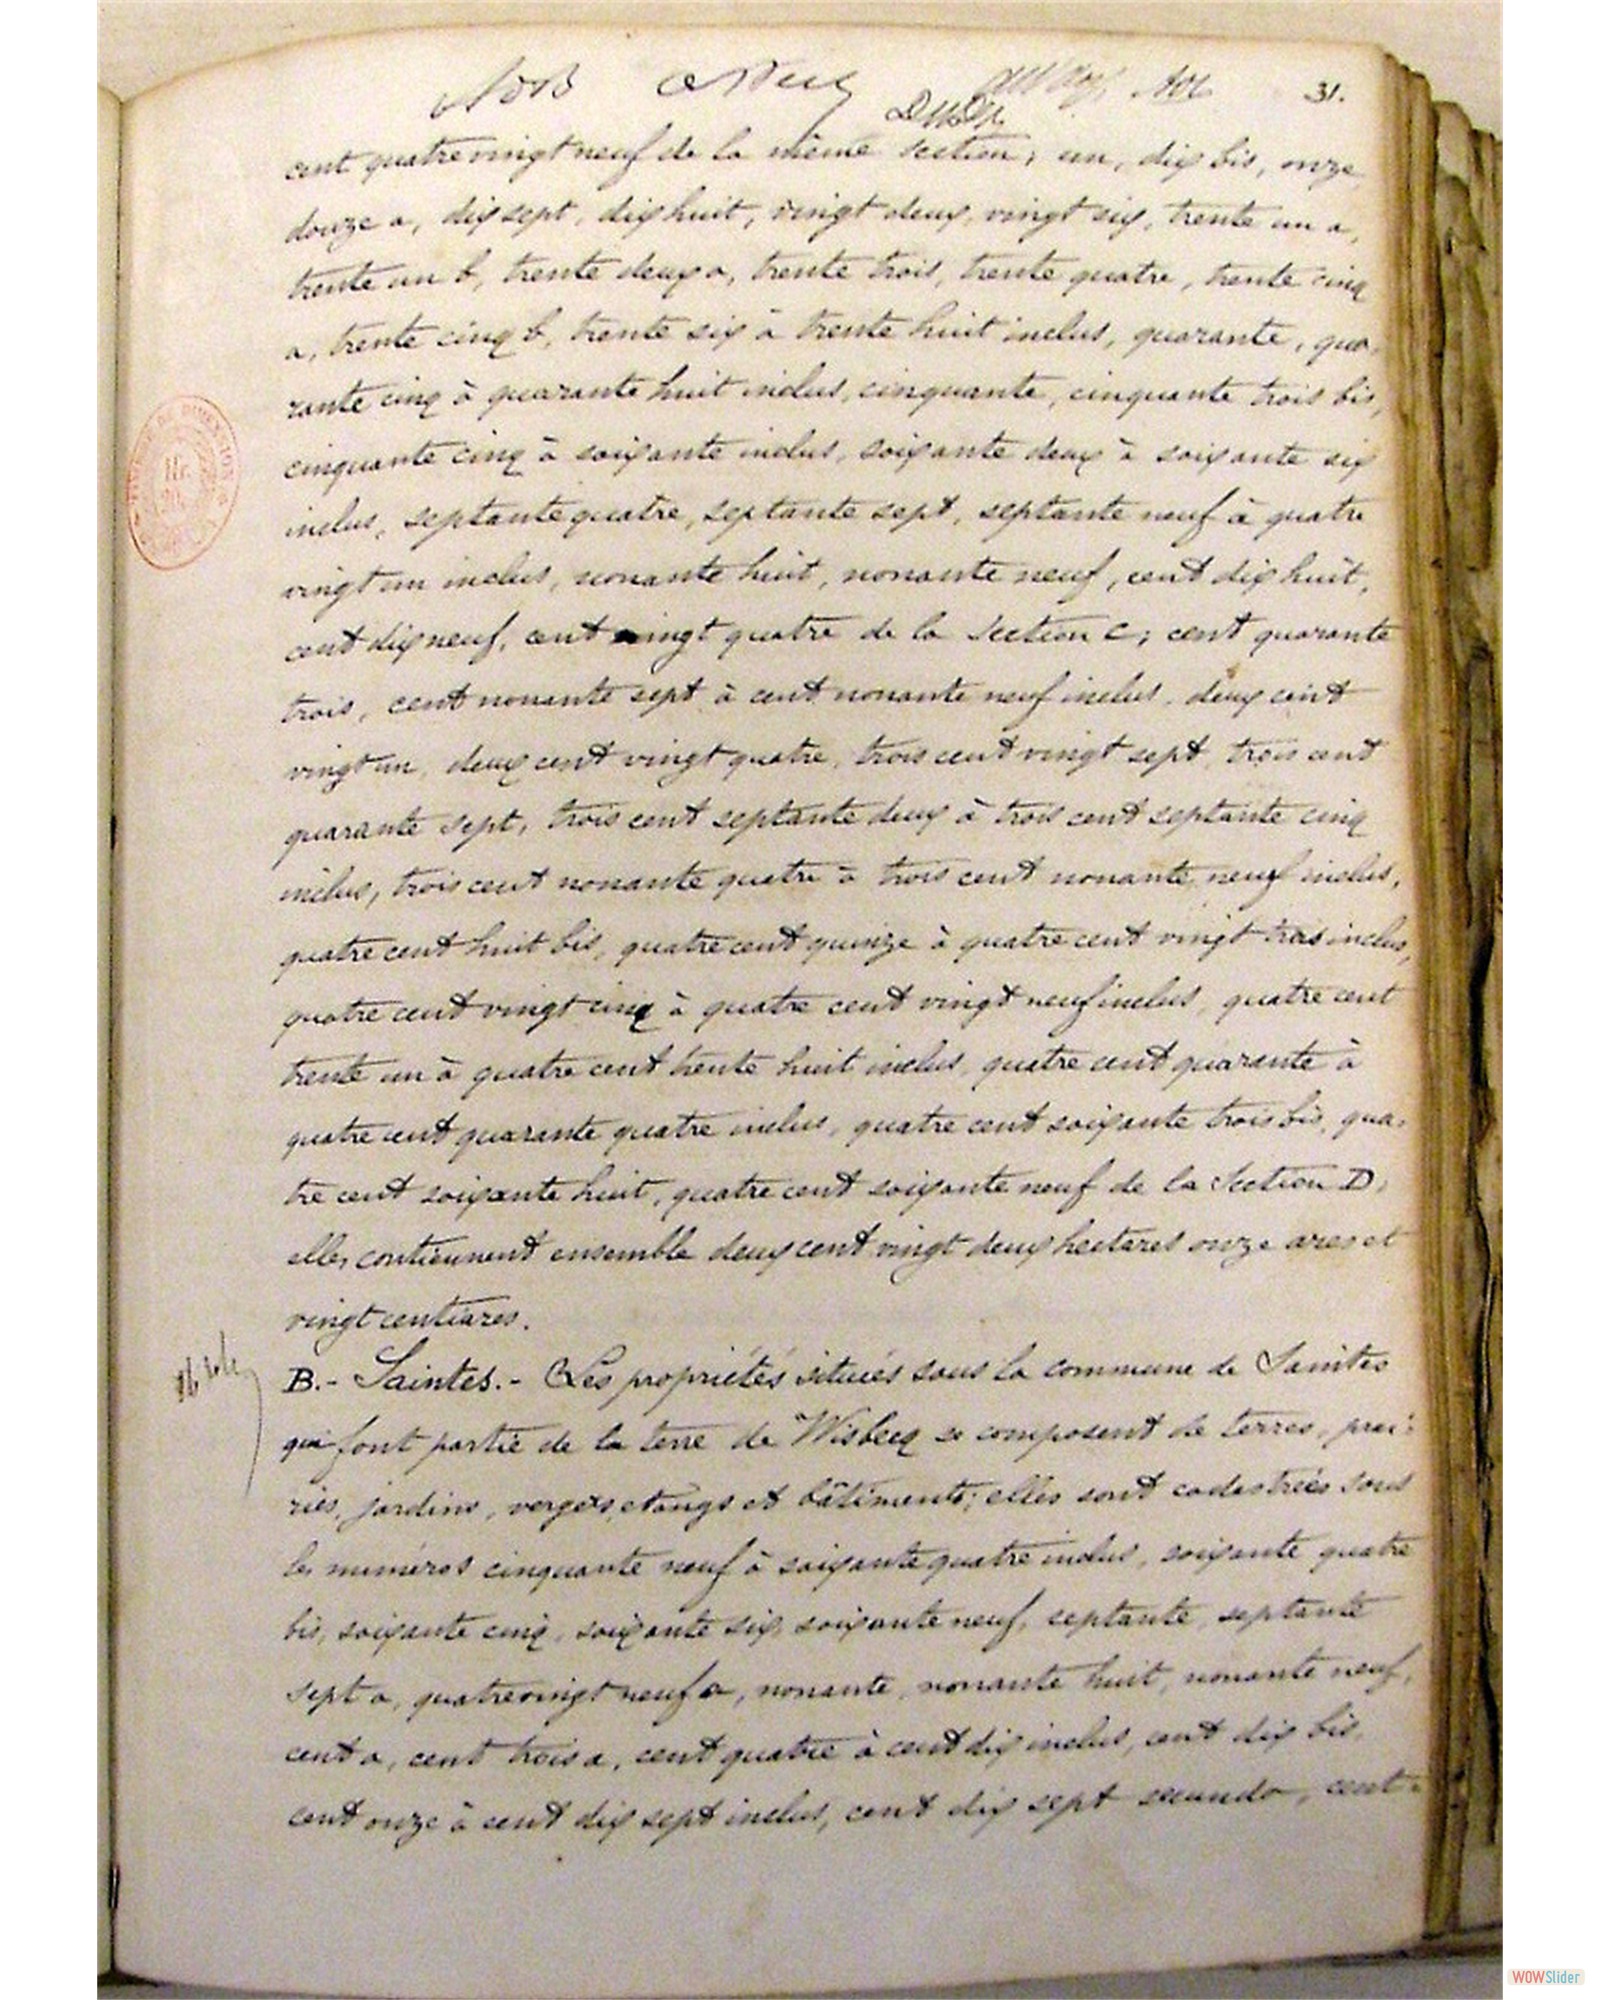 31.
cent quatrevingt neuf de la même section; un, dix bis, onze,
douze a, dix sept, dix huit, vingt deux, vingt six, trente un a,
trente un b, trente deux a, trente trois, trente quatre, trente cinq
a, trente cinq b, trente six à trente huit inclus, quarante, qua-
rante cinq à quarante huit inclus, cinquante, cinquante trois bis,
cinquante cinq à soixante inclus, soixante deux à soixante six
inclus, septante quatre, septante sept, septante neuf à quatre
vingt un inclus, nonante huit, nonante neuf, cent dix huit,
cent dix neuf, cent vingt quatre de la Section C; cent quarante
trois, cent nonante sept à cent nonante neuf inclus, deux cent
vingt un, deux cent vingt quatre, trois cent vingt sept, trois cent
quarante sept, trois cent septante deux à trois cent septante cinq
inclus, trois cent nonante quatre à trois cent nonante neuf inclus,
quatre cent huit bis, quatre cent quinze à quatre cent vingt trois inclus,
quatre cent vingt cinq à quatre cent vingt neuf inclus, quatre cent
trente un à quatre cent trente huit inclus, quatre cent quarante à
quatre cent quarante quatre inclus, quatre cent soixante trois bis, qua-
tre cent soixante huit, quatre cent soixante neuf de la Section D,
elles contiennent ensemble deux cent vingt deux hectares onze ares et
vingt centiares.
B.- Saintes.- Les propriétés situées sous la commune de Saintes
qui font partie de la terre de Wisbecq se composent de terres, prai-
ries, jardins, vergers, etangs et bâtiments; elles sont cadastrées sous
les numéros cinquante neuf à soixante quatre inclus, soixante quatre
bis, soixante cinq, soixante six, soixante neuf, septante, septante
sept a, quatrevingt neuf a, nonante, nonante huit, nonante neuf,
cent a, cent trois a, cent quatre à cent dix inclus, cent dix bis,
cent onze à cent dix sept inclus, cent dix sept secundo, cent-
WOWSlider